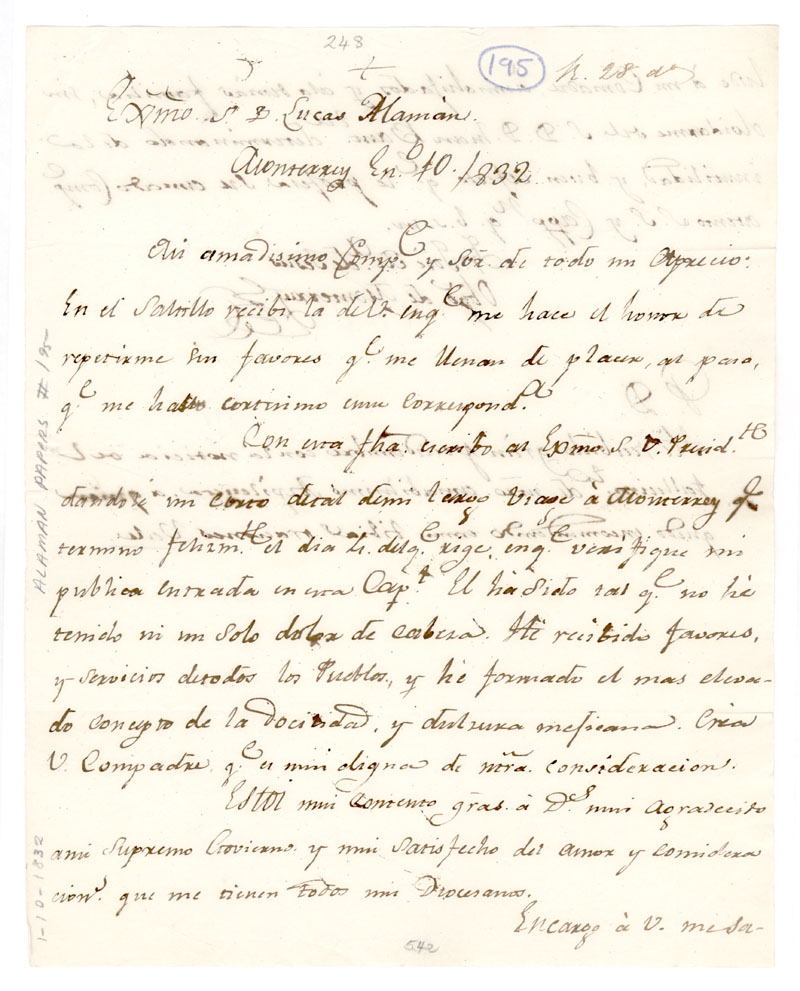 248
195
R. 28 de
+
Exmo. S. D. Lucas Alaman.
Monterrey En.o 10. / 832.
Mi amadisimo Comp.e y Sor. de todo mi aprecio:
En el Saltillo recibi la de V. en q.e me hace el honor de
repetirme sus favores q.e me llenan de placer, al paso,
q.e me hallo cortisimo en su correspond.a
Con esta fha. escribo al Exmo. S. V. Presid.te
dandole un corto detal de mi largo viage à Monterrey q.e
termino felizm.te el dia 4. del q.e rige, en q.e verifique mi
publica entrada en esta Cap.l El ha sido tal q.e no hè
tenido ni un solo dolor de cabesa. Hè recibido favores,
y servicios de todos los Pueblos, y hè formado el mas eleva-
do concepto de la docilidad, y dulzura mejicana. Crea
V. Compadre q.e es mui digna de ntra. consideracion.
Estoi mui contento gras. à D.s mui agradecido
a mi Supremo Govierno y mui satisfecho del amor y considera
cion.s que me tienen todos mis Diocesanos.
Encargo à V. me sa-
542
ALAMAN PAPERS # 195
1-10-1832